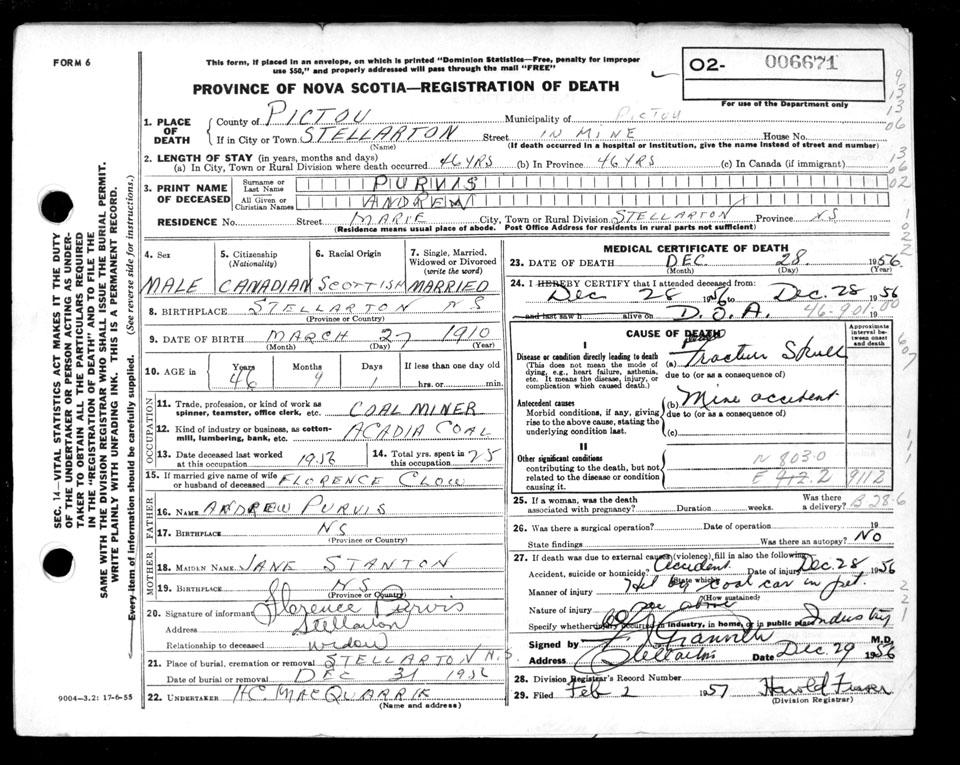 FORM 6
This form, if placed in an envelope, on which is printed "Dominion Statistics—Free, penalty for improper
use $50," and properly addressed will pass through the mail "FREE"
02- 006671
For use of the Department only
PROVINCE OF NOVA SCOTIA—REGISTRATION OF DEATH
9
13
13
06
13
06
02
1. PLACE OF DEATH
County of PICTOU Municipality of PICTOU
If in City or Town STELLARTON Street IN MINE House No.
(Name) (If death occurred in a hospital or institution, give the name instead of street and number)
2. LENGTH OF STAY (in years, months and days)
(a) In City, Town or Rural Division where death occurred 46 YRS (b) In Province 46 YRS (c) In Canada (if immigrant)
3. PRINT NAME OF DECEASED
Surname or Last Name PURVIS
All Given or Christian Names ANDREW
RESIDENCE No. Street MARIE City, Town or Rural Division STELLARTON Province N.S
(Residence means usual place of abode. Post Office Address for residents in rural parts not sufficient)
4. Sex MALE
5. Citizenship (Nationality) CANADIAN
6. Racial Origin SCOTTISH
7. Single, Married, Widowed or Divorced (write the word) MARRIED
8. BIRTHPLACE STELLARTON N S
(Province or Country)
9. DATE OF BIRTH MARCH 27 1910
(Month) (Day) (Year)
10. AGE in Years 46 Months 9 Days 1 If less than one day old
hrs. or min.
OCCUPATION
11. Trade, profession, or kind of work as spinner, teamster, office clerk, etc. COAL MINER
12. Kind of industry or business, as cotton-mill, lumbering, bank, etc. ACADIA COAL
13. Date deceased last worked at this occupation 1956
14. Total yrs. spent in this occupation 25
15. If married give name of wife or husband of deceased FLORENCE CLOW
FATHER
16. NAME ANDREW PURVIS
17. BIRTHPLACE NS
(Province or Country)
MOTHER
18. MAIDEN NAME JANE STANTON
19. BIRTHPLACE N S
(Province or Country)
20. Signature of informant Florence Purvis
Address Stellarton
Relationship to deceased widow
21. Place of burial, cremation or removal STELLARTON N.S
Date of burial or removal DEC 31 1956
22. UNDERTAKER H.C. MACQUARRIE
(Name and Address)
MEDICAL CERTIFICATE OF DEATH
23. DATE OF DEATH DEC 28 1956
(Month) (Day) (Year)
24. I HEREBY CERTIFY that I attended deceased from:
Dec 28 1956 to Dec. 28 1956
and last saw h alive on D.O.A. 19
46-901-100
CAUSE OF DEATH
Approximate interval between onset and death
I
Disease or condition directly leading to death
(This does not mean the mode of dying, e.g., heart failure, asthenia, etc. It means the disease, injury, or complication which caused death.)
(a) Fracture Skull
due to (or as a consequence of)
Antecedent causes
Morbid conditions, if any, giving rise to the above cause, stating the underlying condition last.
(b) Mine accident
due to (or as a consequence of)
(c)
II
Other significant conditions
contributing to the death, but not related to the disease or condition causing it.
N 803.0
E 912.2 9112
25. If a woman, was the death associated with pregnancy? Duration weeks. Was there a delivery? B 28-6
26. Was there a surgical operation? Date of operation 19
State findings Was there an autopsy? NO
27. If death was due to external causes (violence), fill in also the following
Accident, suicide or homicide? Accident Date of injury Dec. 28 1956
(State which)
Manner of injury Hit by coal car in pit.
(How sustained)
Nature of injury See above
Specify whether injury occurred in industry, in home, or in public place Industry
Signed by M.D.
Address Stellarton Date Dec. 29 1956
28. Division Registrar's Record Number
29. Filed Feb 2 1957 Harold Fraser
(Division Registrar)
SEC. 14—VITAL STATISTICS ACT MAKES IT THE DUTY
OF THE UNDERTAKER OR PERSON ACTING AS UNDER-
TAKER TO OBTAIN ALL THE PARTICULARS REQUIRED
IN THE "REGISTRATION OF DEATH" AND TO FILE THE
SAME WITH THE DIVISION REGISTRAR WHO SHALL ISSUE THE BURIAL PERMIT.
WRITE PLAINLY WITH UNFADING INK. THIS IS A PERMANENT RECORD.
Every item of information should be carefully supplied. (See reverse side for instructions.)
9004—3.2: 17-6-55